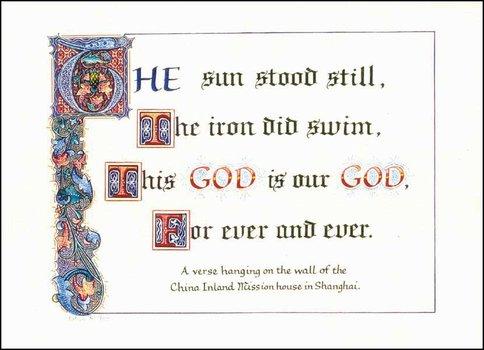 THE sun stood still,
The iron did swim,
This GOD is our GOD,
For ever and ever.
A verse hanging on the wall of the
China Inland Mission house in Shanghai.